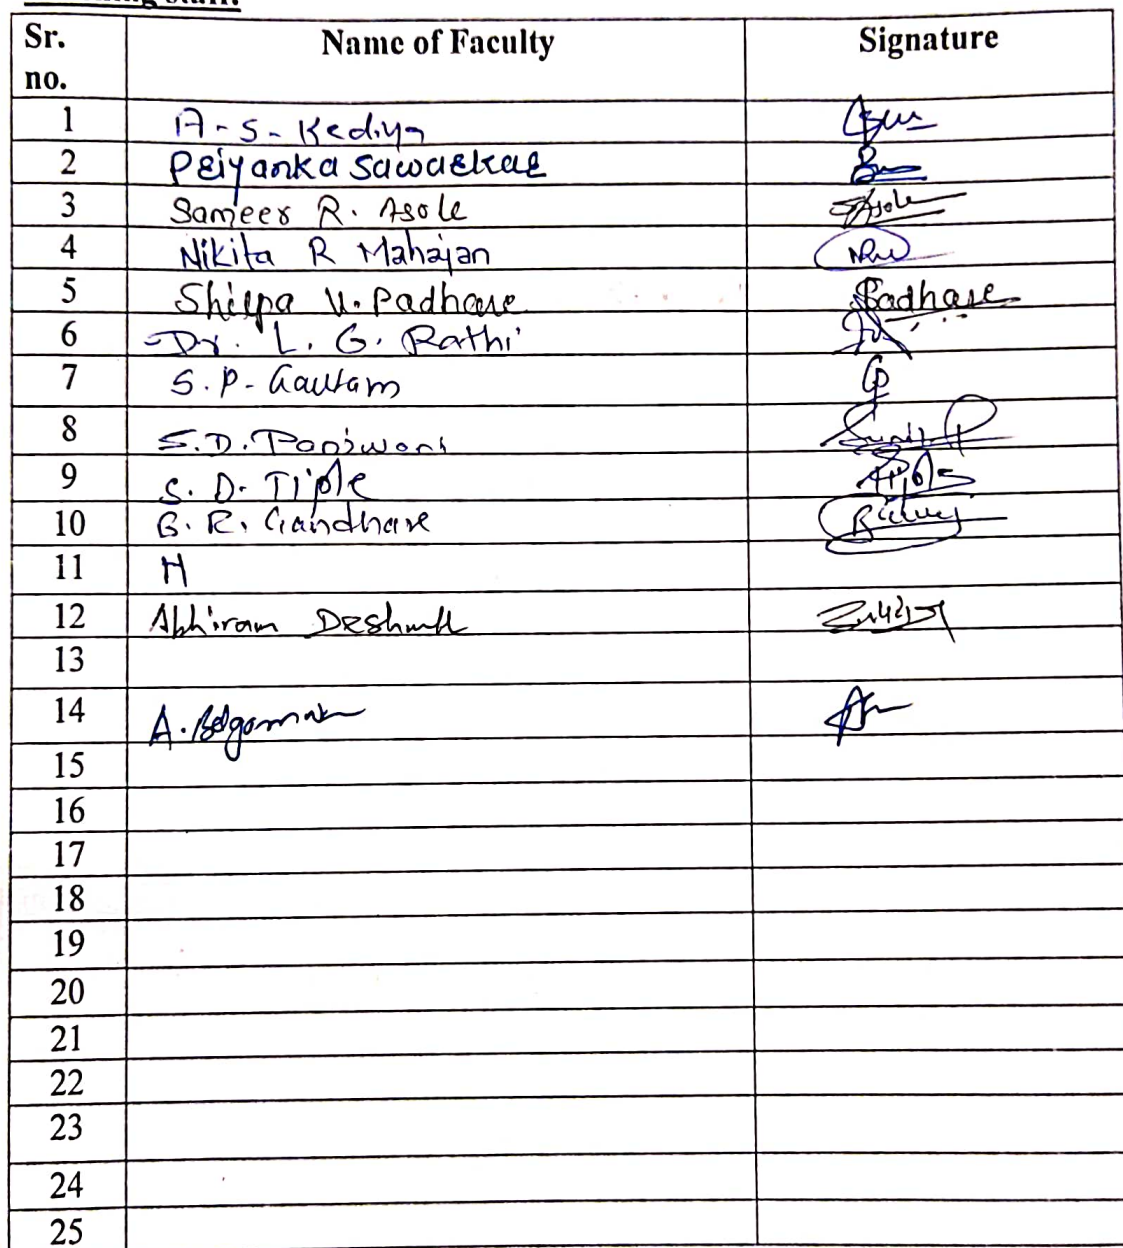 Sr. no. Name of Faculty Signature
1 A-S-Kediya
2 Priyanka Sawarkar
3 Sameer R. Asole Asole
4 Nikita R Mahajan
5 Shilpa V. Padhare Padhare
6 Dr. L. G. Rathi
7 S.P-Gautam
8 S.D.Panjwani
9 S. D. Tiple
10 B. R. Gandhare
11 H
12 Abhiram Deshmukh
13
14 A.
15
16
17
18
19
20
21
22
23
24
25